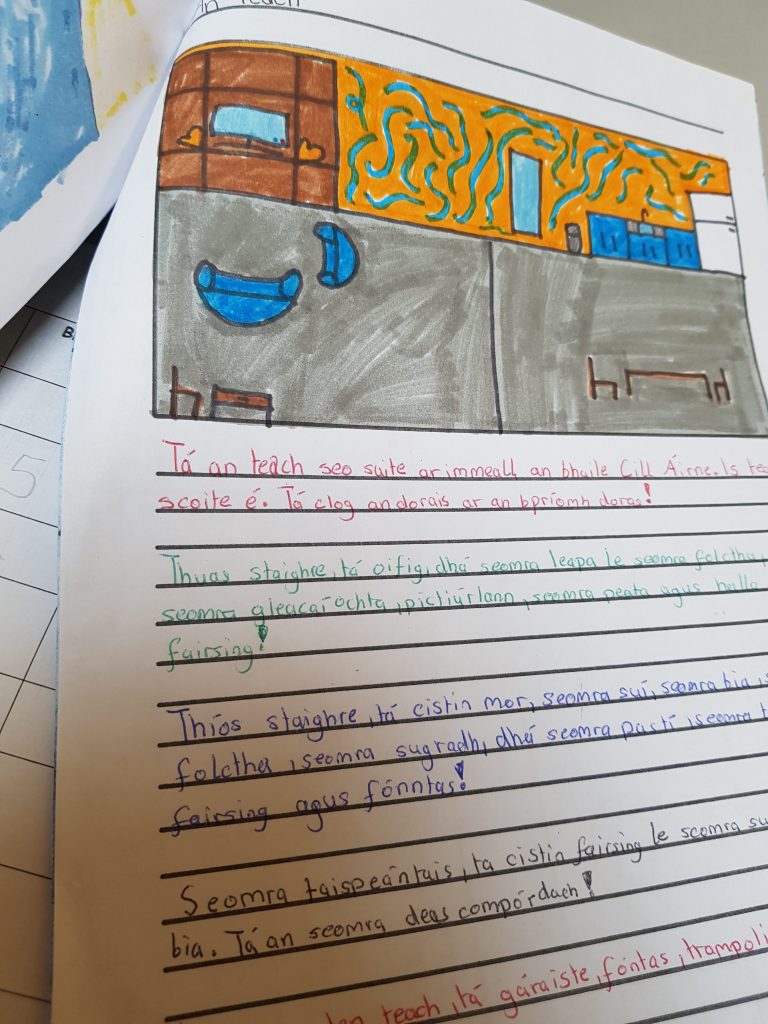 An Teach
Tá an teach seo suite ar immeall an bhaile Cill Áirne. Is
scoite é. Tá clog an dorais ar an bpríomh doras!
Thuas staighre, tá oifig, dhá seomra leapa le seomra folctha,
seomra gleacaíochta, pictiúrlann, seomra peata agus halla
fairsing!
Thíos staighre, tá cistin mor, seomra suí, seomra bia,
folctha, seomra sugradh, dhá seomra pastí, seomra
fairsing agus fónntas!
Seomra taispeántais, ta cistin fairsing le seomra
bia. Tá an seomra deas compórdach!
teach, tá gáraiste, fóntas,
5